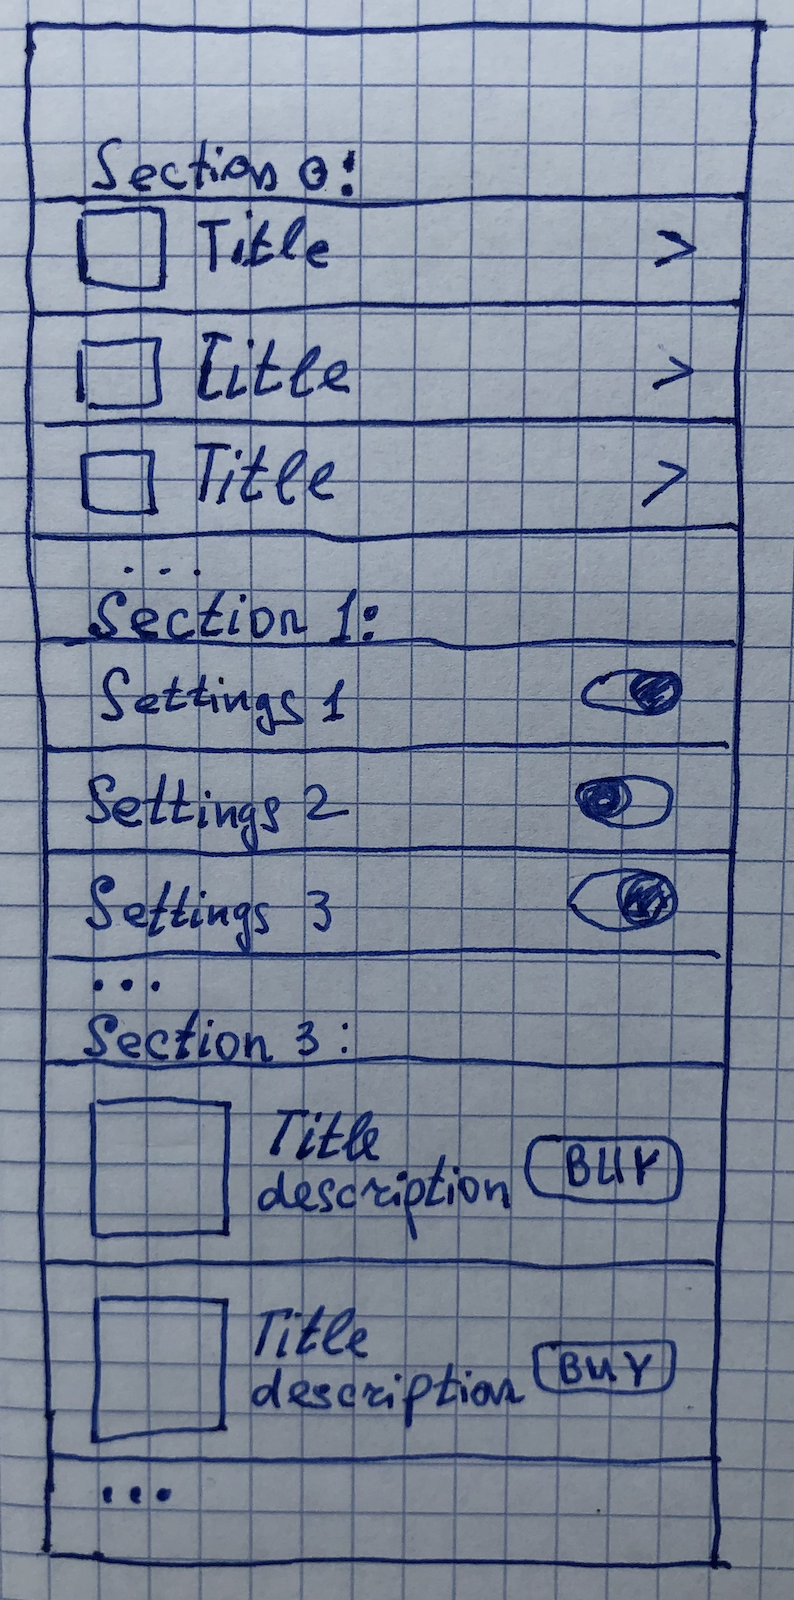 Section 0:
Title >
Title >
Title >
...
Section 1:
Settings 1
Settings 2
Settings 3
...
Section 3:
Title
description BUY
Title
description BUY
...